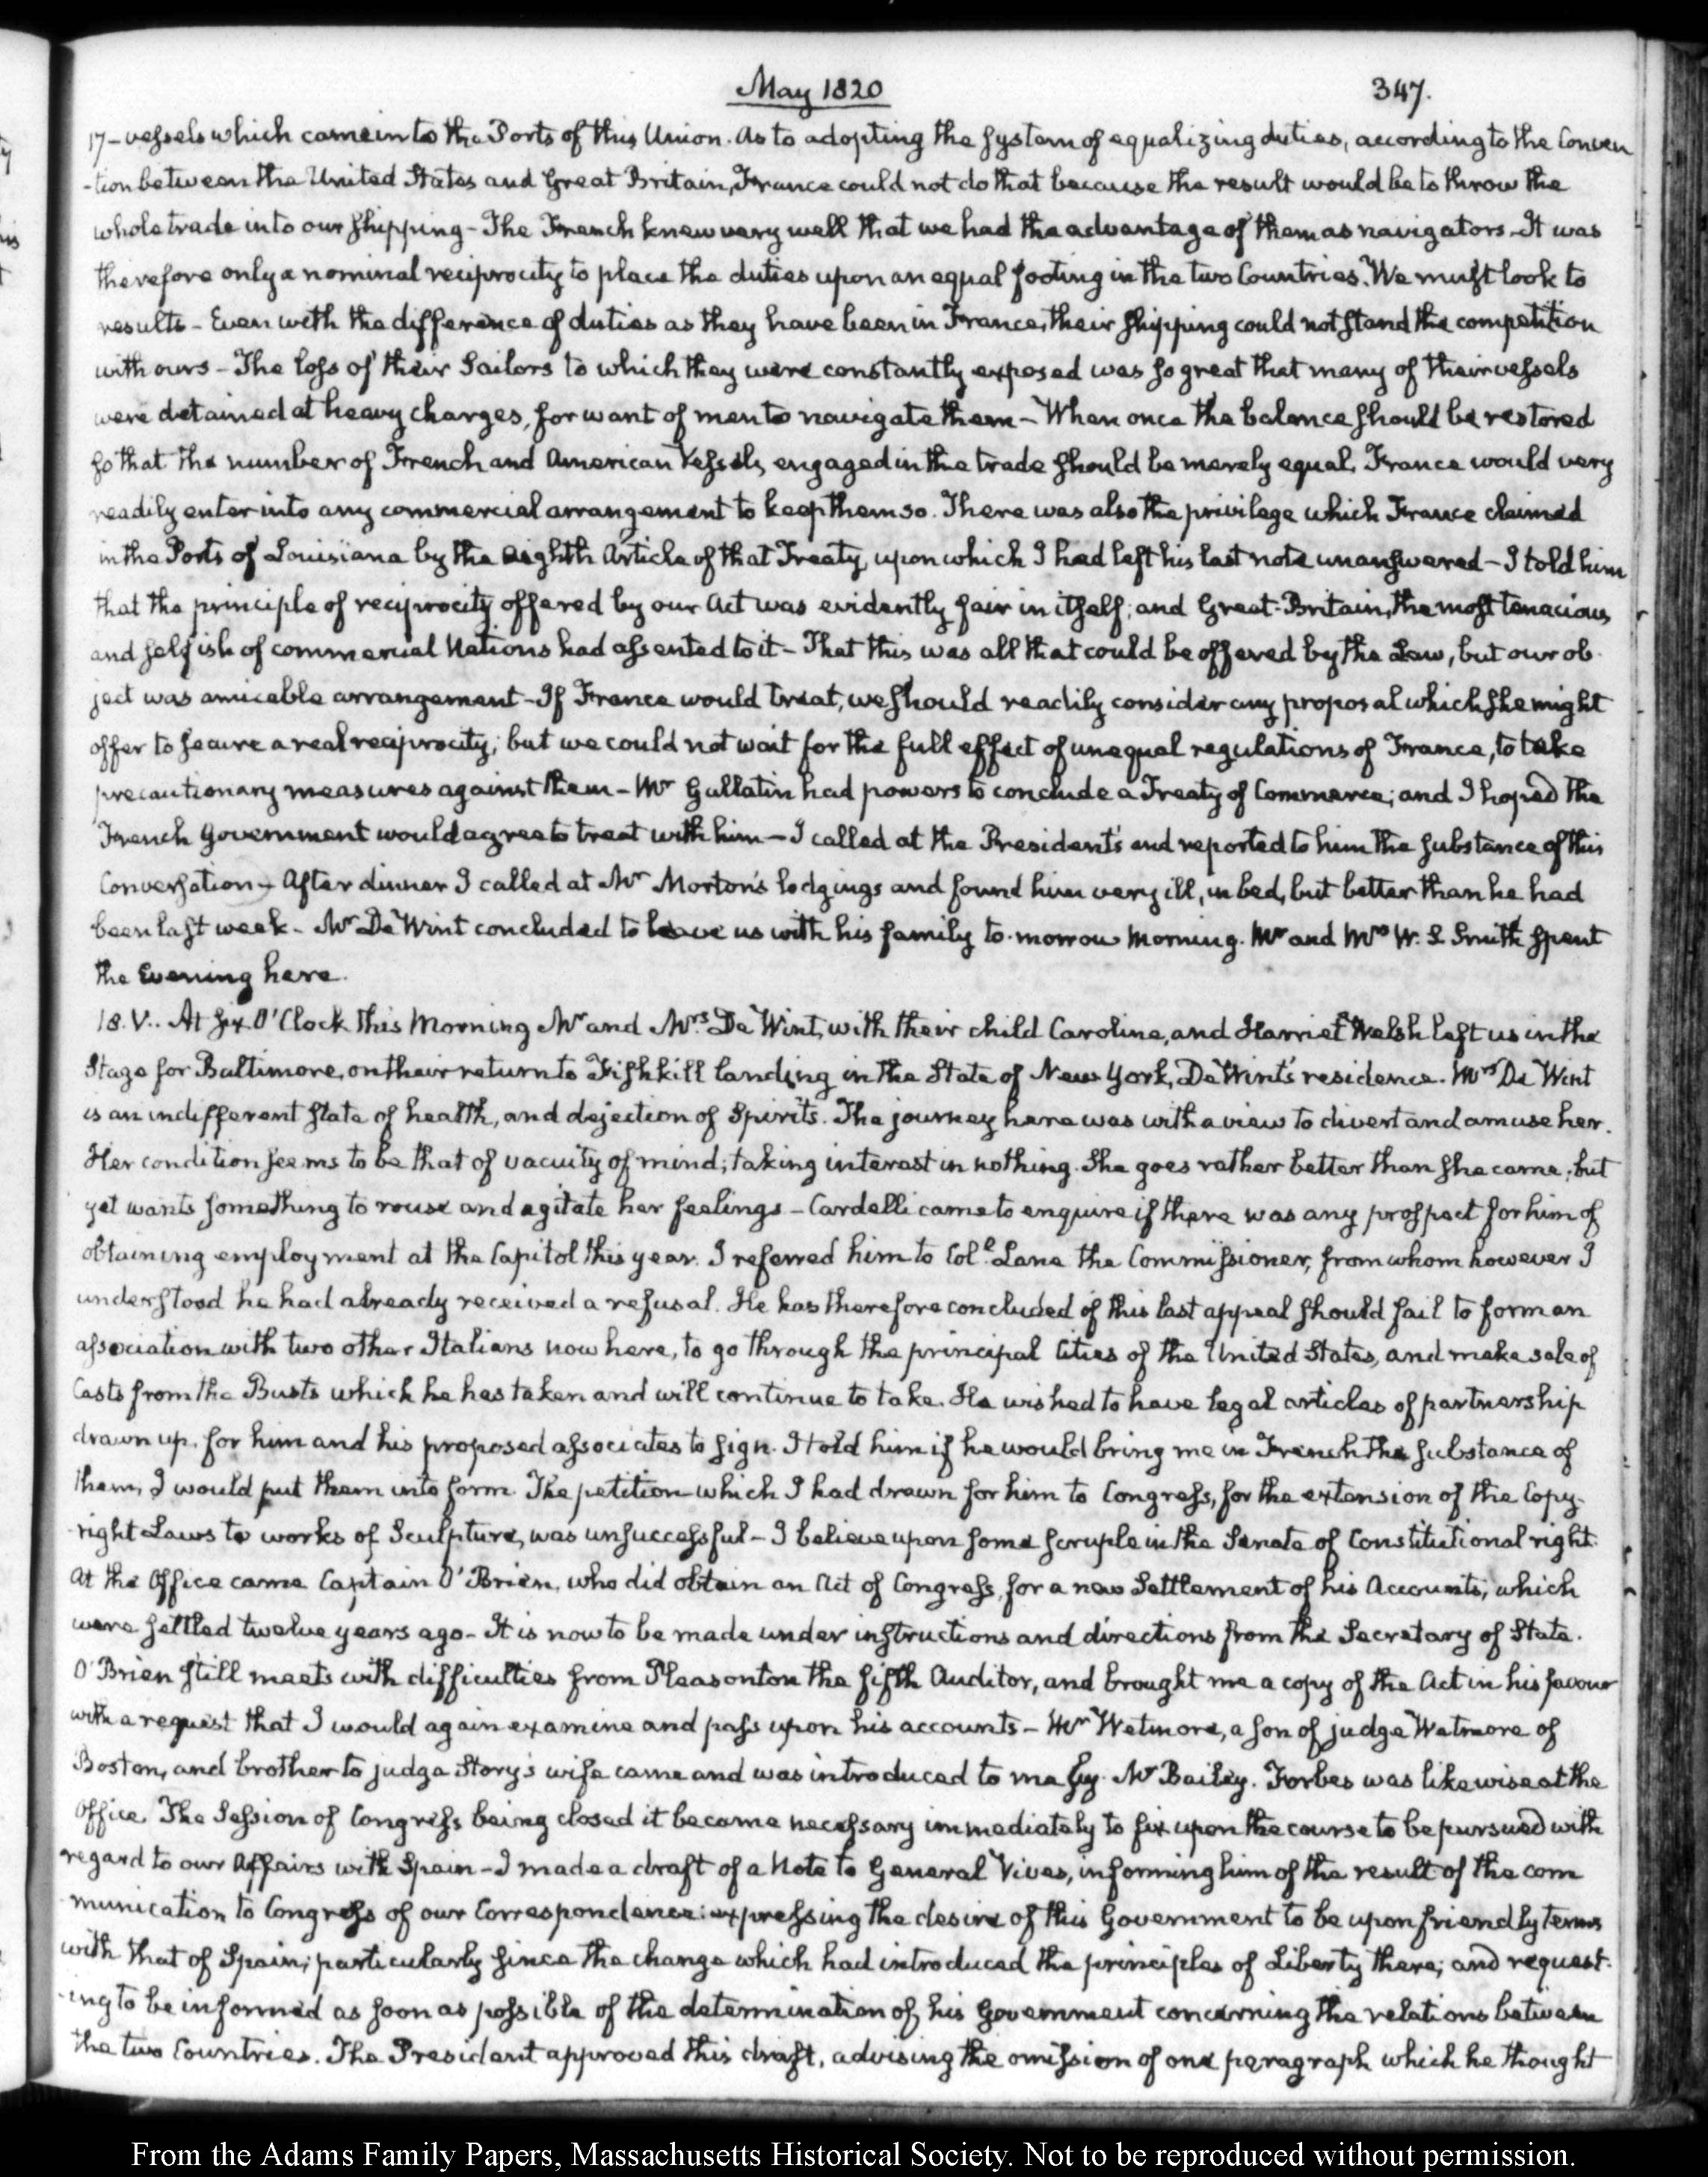 May 1820
347.
17 - vessels which came into the Ports of this Union. As to adopting the system of equalizing duties, according to the Conven
-tion between the United States and Great Britain, France could not do that because the result would be to throw the
whole trade into our shipping - The French knew very well that we had the advantage of them as navigators - It was
therefore only a nominal reciprocity to place the duties upon an equal footing in the two Countries. We must look to
results - Even with the difference of duties as they have been in France, their shipping could not stand the competition
with ours - The loss of their Sailors to which they were constantly exposed was so great that many of their vessels
were detained at heavy charges, for want of men to navigate them - When once the balance should be restored
so that the number of French and American Vessels, engaged in the trade should be merely equal, France would very
readily enter into any commercial arrangement to keep them so. There was also the privilege which France claimed
in the Ports of Louisiana by the eighth Article of that Treaty, upon which I had left his last note unanswered - I told him
that the principle of reciprocity offered by our Act was evidently fair in itself; and Great-Britain, the most tenacious,
and selfish of commercial Nations had assented to it - That this was all that could be offered by the Law, but our ob-
ject was amicable arrangement - If France would treat, we should readily consider any proposal which she might
offer to secure a real reciprocity; but we could not wait for the full effect of unequal regulations of France, to take
precautionary measures against them - Mr Gallatin had powers to conclude a Treaty of Commerce; and I hoped the
French Government would agree to treat with him - I called at the President's and reported to him the substance of this
Conversation - After dinner I called at Mr Morton's lodgings and found him very ill, in bed, but better than he had
been last week - Mr De Wint concluded to leave us with his family to-morrow Morning. Mr and Mrs W. S. Smith spent
the Evening here.
18. V.. At six O'Clock this Morning Mr and Mrs De Wint, with their child Caroline, and Harriet Welsh left us in the
Stage for Baltimore, on their return to Fishkill landing in the State of New York, De Wint's residence. Mrs De Wint
is an indifferent state of health, and dejection of Spirits. The journey here was with a view to divert and amuse her.
Her condition seems to be that of vacuity of mind; taking interest in nothing. She goes rather better than she came; but
yet wants something to rouse and agitate her feelings - Cardelli came to enquire if there was any prospect for him of
obtaining employment at the Capitol this year. I referred him to Coll. Lane the Commissioner, from whom however I
understood he had already received a refusal. He has therefore concluded if this last appeal should fail to form an
association with two other Italians now here, to go through the principal Cities of the United States, and make sale of
Casts from the Busts which he has taken and will continue to take. He wished to have legal articles of partnership
drawn up, for him and his proposed associates to sign. I told him if he would bring me in French the substance of
them, I would put them into form. The petition which I had drawn for him to Congress, for the extension of the Copy-
right Laws to works of Sculpture, was unsuccessful - I believe upon some scruple in the Senate of Constitutional right.
At the Office came Captain O'Brien, who did obtain an Act of Congress, for a new Settlement of his Accounts; which
were settled twelve years ago - It is now to be made under instructions and directions from the Secretary of State.
O'Brien still meets with difficulties from Pleasonton the fifth Auditor, and brought me a copy of the Act in his favour
with a request that I would again examine and pass upon his accounts - Mr Wetmore, a son of judge Wetmore of
Boston, and brother to judge Story's wife came and was introduced to me by Mr Bailey. Forbes was likewise at the
Office. The Session of Congress being closed it became necessary immediately to fix upon the course to be pursued with
regard to our Affairs with Spain - I made a draft of a Note to General Vives, informing him of the result of the com
munication to Congress of our Correspondence: expressing the desire of this Government to be upon friendly terms
with that of Spain; particularly since the change which had introduced the principles of Liberty there; and request-
-ing to be informed as soon as possible of the determination of his Government concerning the relations between
the two Countries. The President approved this draft, advising the omission of one paragraph which he thought
From the Adams Family Papers, Massachusetts Historical Society. Not to be reproduced without permission.